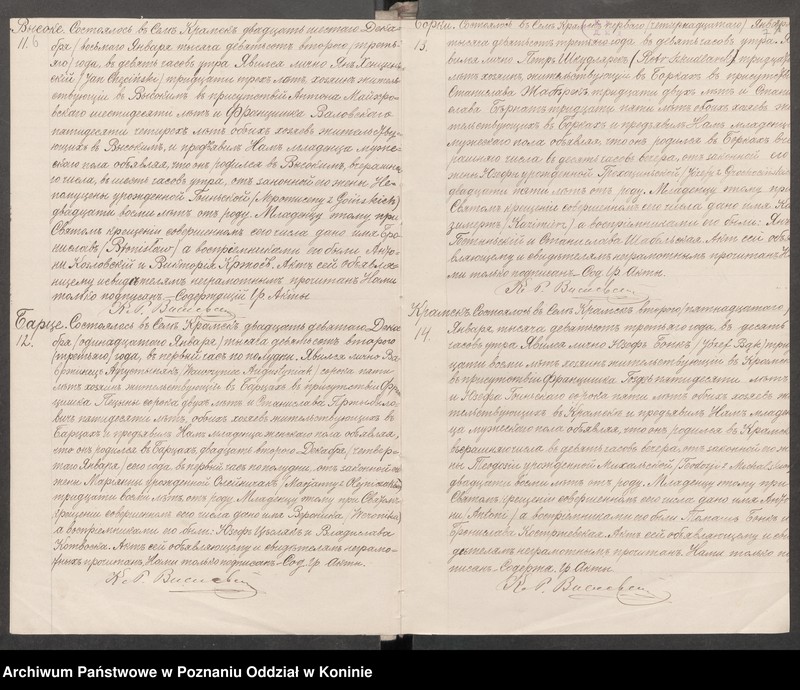 Высоке. Состоялось в Селѣ Крамскѣ двадцать шестаго Дека-
11. бря / восьмаго Января тысяча девятьсот второго / треть-
яго / года, в девять часов утра. Явился лично Ян Хенцин-
ский / Jan Chęciński / тридцати трех лѣт, хозяин житель-
ствующий в Высоким в присутствии Антона Майхро-
вскаго шестидесяти лѣт и Францишка Валовскаго
пятидесяти четырех лѣт обоих хозяев жительству-
ющих в Высоким, и предъявил Нам младенца муже-
скаго пола объявляя, что он родился в Высоким, вчерашня-
го числа, в шесть часов утра, от законной его жены Не-
помуцены урожденной
двадцати восьми лѣт от роду. Младенцу тому при
Святом крещении совершенном сего числа дано имя Бро-
нислав / Bronisław / а восприемниками его были Анто-
ни Козловский и Виктория Акт сей объявля-
ющему и свидѣтелям неграмотным прочитан Нами
только подписан. Содержащий Гр. Акты
К. Р.
Барце. Состоялось в Селѣ Крамскѣ двадцать девятаго Дека-
12. бря / одинадцатаго Января / тысяча девятьсот второго
/ третьяго / года, в первый час по полудни. Явился лично Ва-
вржинец Августыняк / Wawrzyniec Augustyniak / сорока пяти
лѣт хозяин жительствующий в Барцах в присутствии Фран-
цишка сорока двух лѣт и Станислава
пятидесяти лѣт, обоих хозяев жительствующих в
Барцах и предъявил Нам младенца женскаго пола объявляя,
что он родился в Барцах двадцать второго Декабря / четвер-
таго Января / сего года, в первый час по полудни, от законной его
жены Марианны урожденной Олейничак / Marjanny z Olejniczaków /
тридцати восьми лѣт от роду. Младенцу тому при Святом
крещении совершенном сего числа дано имя Вероника / Weronika /
а восприемниками его были: Юзеф и Владислава
Акт сей объявляющему и свидѣтелям неграмо-
тным прочитан Нами только подписан Сод. Гр. Акты.
К. Р.
Борки. Состоялось в Селѣ Крамскѣ перваго / четырнадцатаго / Января
13. тысяча девятьсот третьяго года в девять часов утра. Я-
вился лично Петр Шкудлярек / Piotr Szkudlarek / тридцати
лѣт хозяин, жительствующий в Борках в присутствии
Станислава тридцати двух лѣт и Стани-
слава тридцати пяти лѣт обоих хозяев жи-
тельствующих в Борках и предъявил Нам младенца
мужескаго пола объявляя, что он родился в Борках вче-
рашняго числа в десять часов вечера, от законной его
жены Юзефы урожденной
двадцати пяти лѣт от роду. Младенцу тому при
Святом крещении совершенном сего числа дано имя Ка-
зимерж / Kazimierz / а восприемниками его были: Ян
и Станислава Акт сей объя-
вляющему и свидѣтелям неграмотным прочитан На-
ми только подписан. Сод. Гр. Акты.
К. Р.
Крамск. Состоялось в Селѣ Крамскѣ второго / пятнадцатаго /
14. Января тысяча девятьсот третьяго года, в десять
часов утра Явился лично Юзеф Бонк / Józef Bąk / трид-
цати восьми лѣт хозяин жительствующий в Крамскѣ
в присутствии Францишка пятидесяти лѣт
и Юзефа сорока пяти лѣт обоих хозяев жи-
тельствующих в Крамскѣ и предъявил Нам младен-
ца мужескаго пола объявляя, что он родился в Крамскѣ
вчерашняго числа в девять часов вечера, от законной его же-
ны Теодозии урожденной Михальской
двадцати восьми лѣт от роду. Младенцу тому при
Святом крещении совершенном сего числа дано имя Анто-
ни / Antoni / а восприемниками его были Томаш Бонк и
Бронислава Акт сей объявляющему и сви-
дѣтелям неграмотным прочитан. Нами только по-
дписан. Содержа. Гр. Акты
К. Р.
Archiwum Państwowe w Poznaniu Oddział w Koninie